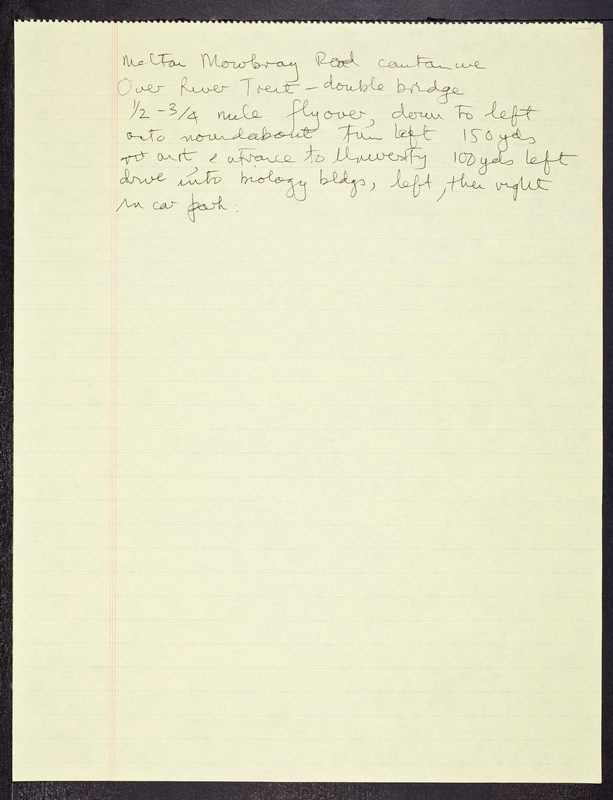 Melton Mowbray Road continue
Over River Trent - double bridge
1/2 - 3/4 mile flyover, down to left
onto roundabout turn left 150 yds
entrance to University 100 yds left
drive into biology bldgs, left, then right
in car park.